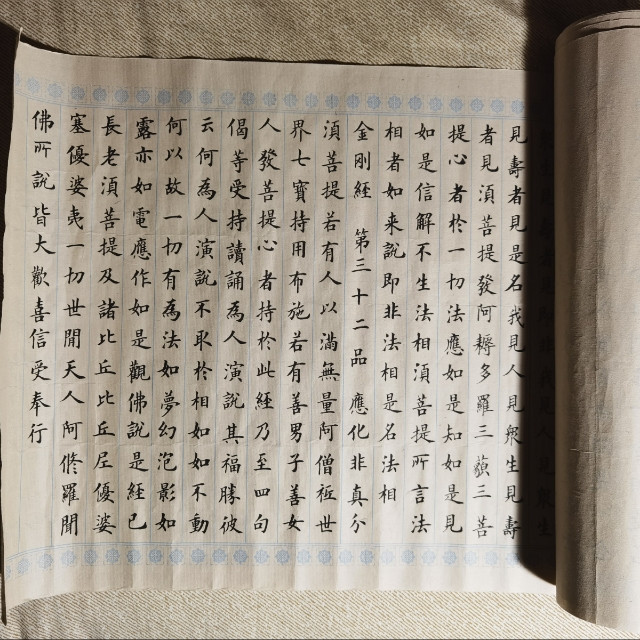 見壽者見是名我見人見眾生見壽
者見湏菩提發阿耨多羅三藐三菩
提心者於一切法應如是知如是見
如是信解不生法相湏菩提所言法
相者如来說即非法相是名法相
金剛經 第三十二品 應化非真分
湏菩提若有人以滿無量阿僧祇世
界七寶持用布施若有善男子善女
人發菩提心者持於此經乃至四句
偈等受持讀誦為人演說其福勝彼
云何為人演說不取於相如如不動
何以故一切有為法如夢幻泡影如
露亦如電應作如是觀佛說是經已
長老湏菩提及諸比丘比丘尼優婆
塞優婆夷一切世間天人阿修羅聞
佛所說皆大歡喜信受奉行